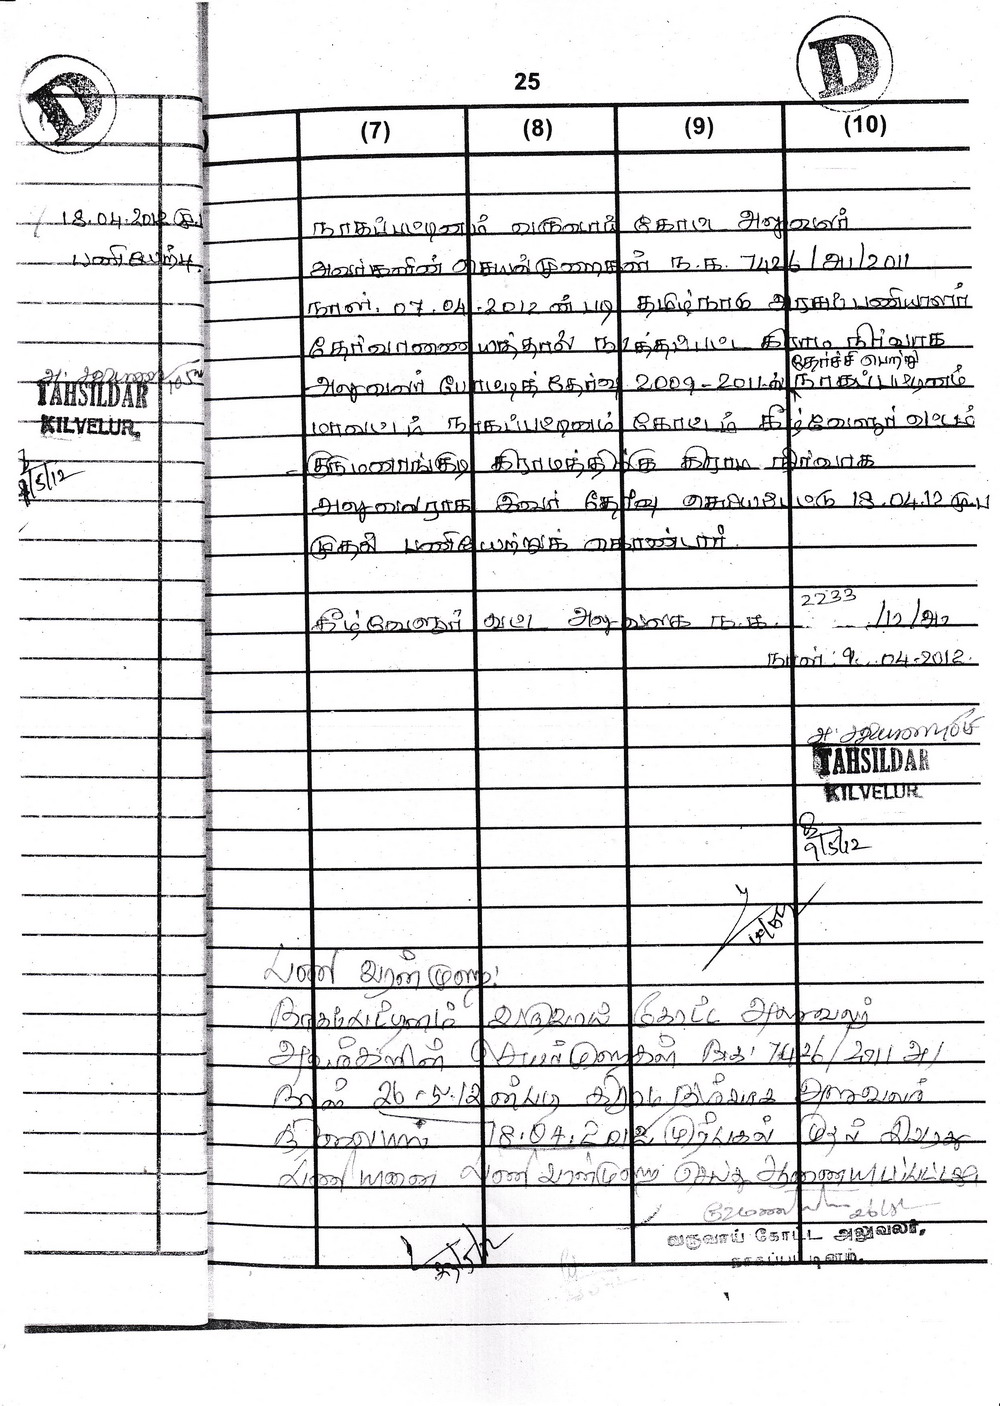 D
D
25
(7) (8) (9) (10)
18.04.2012 மு.ப
பணியேற்பு.
நாகப்பட்டினம் வருவாய் கோட்ட அலுவலர்
அவர்களின் செயல்முறைகள் ந.க. 7426/அ1/2011
நாள். 07.04.2012 ன் படி தமிழ்நாடு அரசுப்பணியாளர்
தேர்வாணையத்தால் நடத்தப்பட்ட கிராம நிர்வாக
தேர்ச்சி பெற்று
அலுவலர் போட்டித் தேர்வு 2009-2011-ல் நாகப்பட்டினம்
மாவட்டம் நாகப்பட்டினம் கோட்டம் கீழ்வேளூர் வட்டம்
திருமணங்குடி கிராமத்திற்கு கிராம நிர்வாக
அலுவலராக இவர் தேர்வு செய்யப்பட்டு 18.04.12 மு.ப
முதல் பணியேற்றுக் கொண்டார்.
TAHSILDAR
KILVELUR.
9/5/12
கீழ்வேளூர் வட்ட அலுவலக ந.க. 2233/12/அ2
நாள்: 9..04-2012.
TAHSILDAR
KILVELUR
9/5/12
பணி வரன்முறை:
நாகப்பட்டினம் வருவாய் கோட்ட அலுவலர்
அவர்களின் செயல்முறைகள் ந.க. 7426/2011 அ1
நாள் 26-5-12 ன்படி கிராம நிர்வாக அலுவலர்
நிலையில் 18.04.2012 முற்பகல் முதல் இவரது
பணியினை பணி வரன்முறை செய்து ஆணையிடப்பட்டது.
வருவாய் கோட்ட அலுவலர்,
நாகப்பட்டினம்.